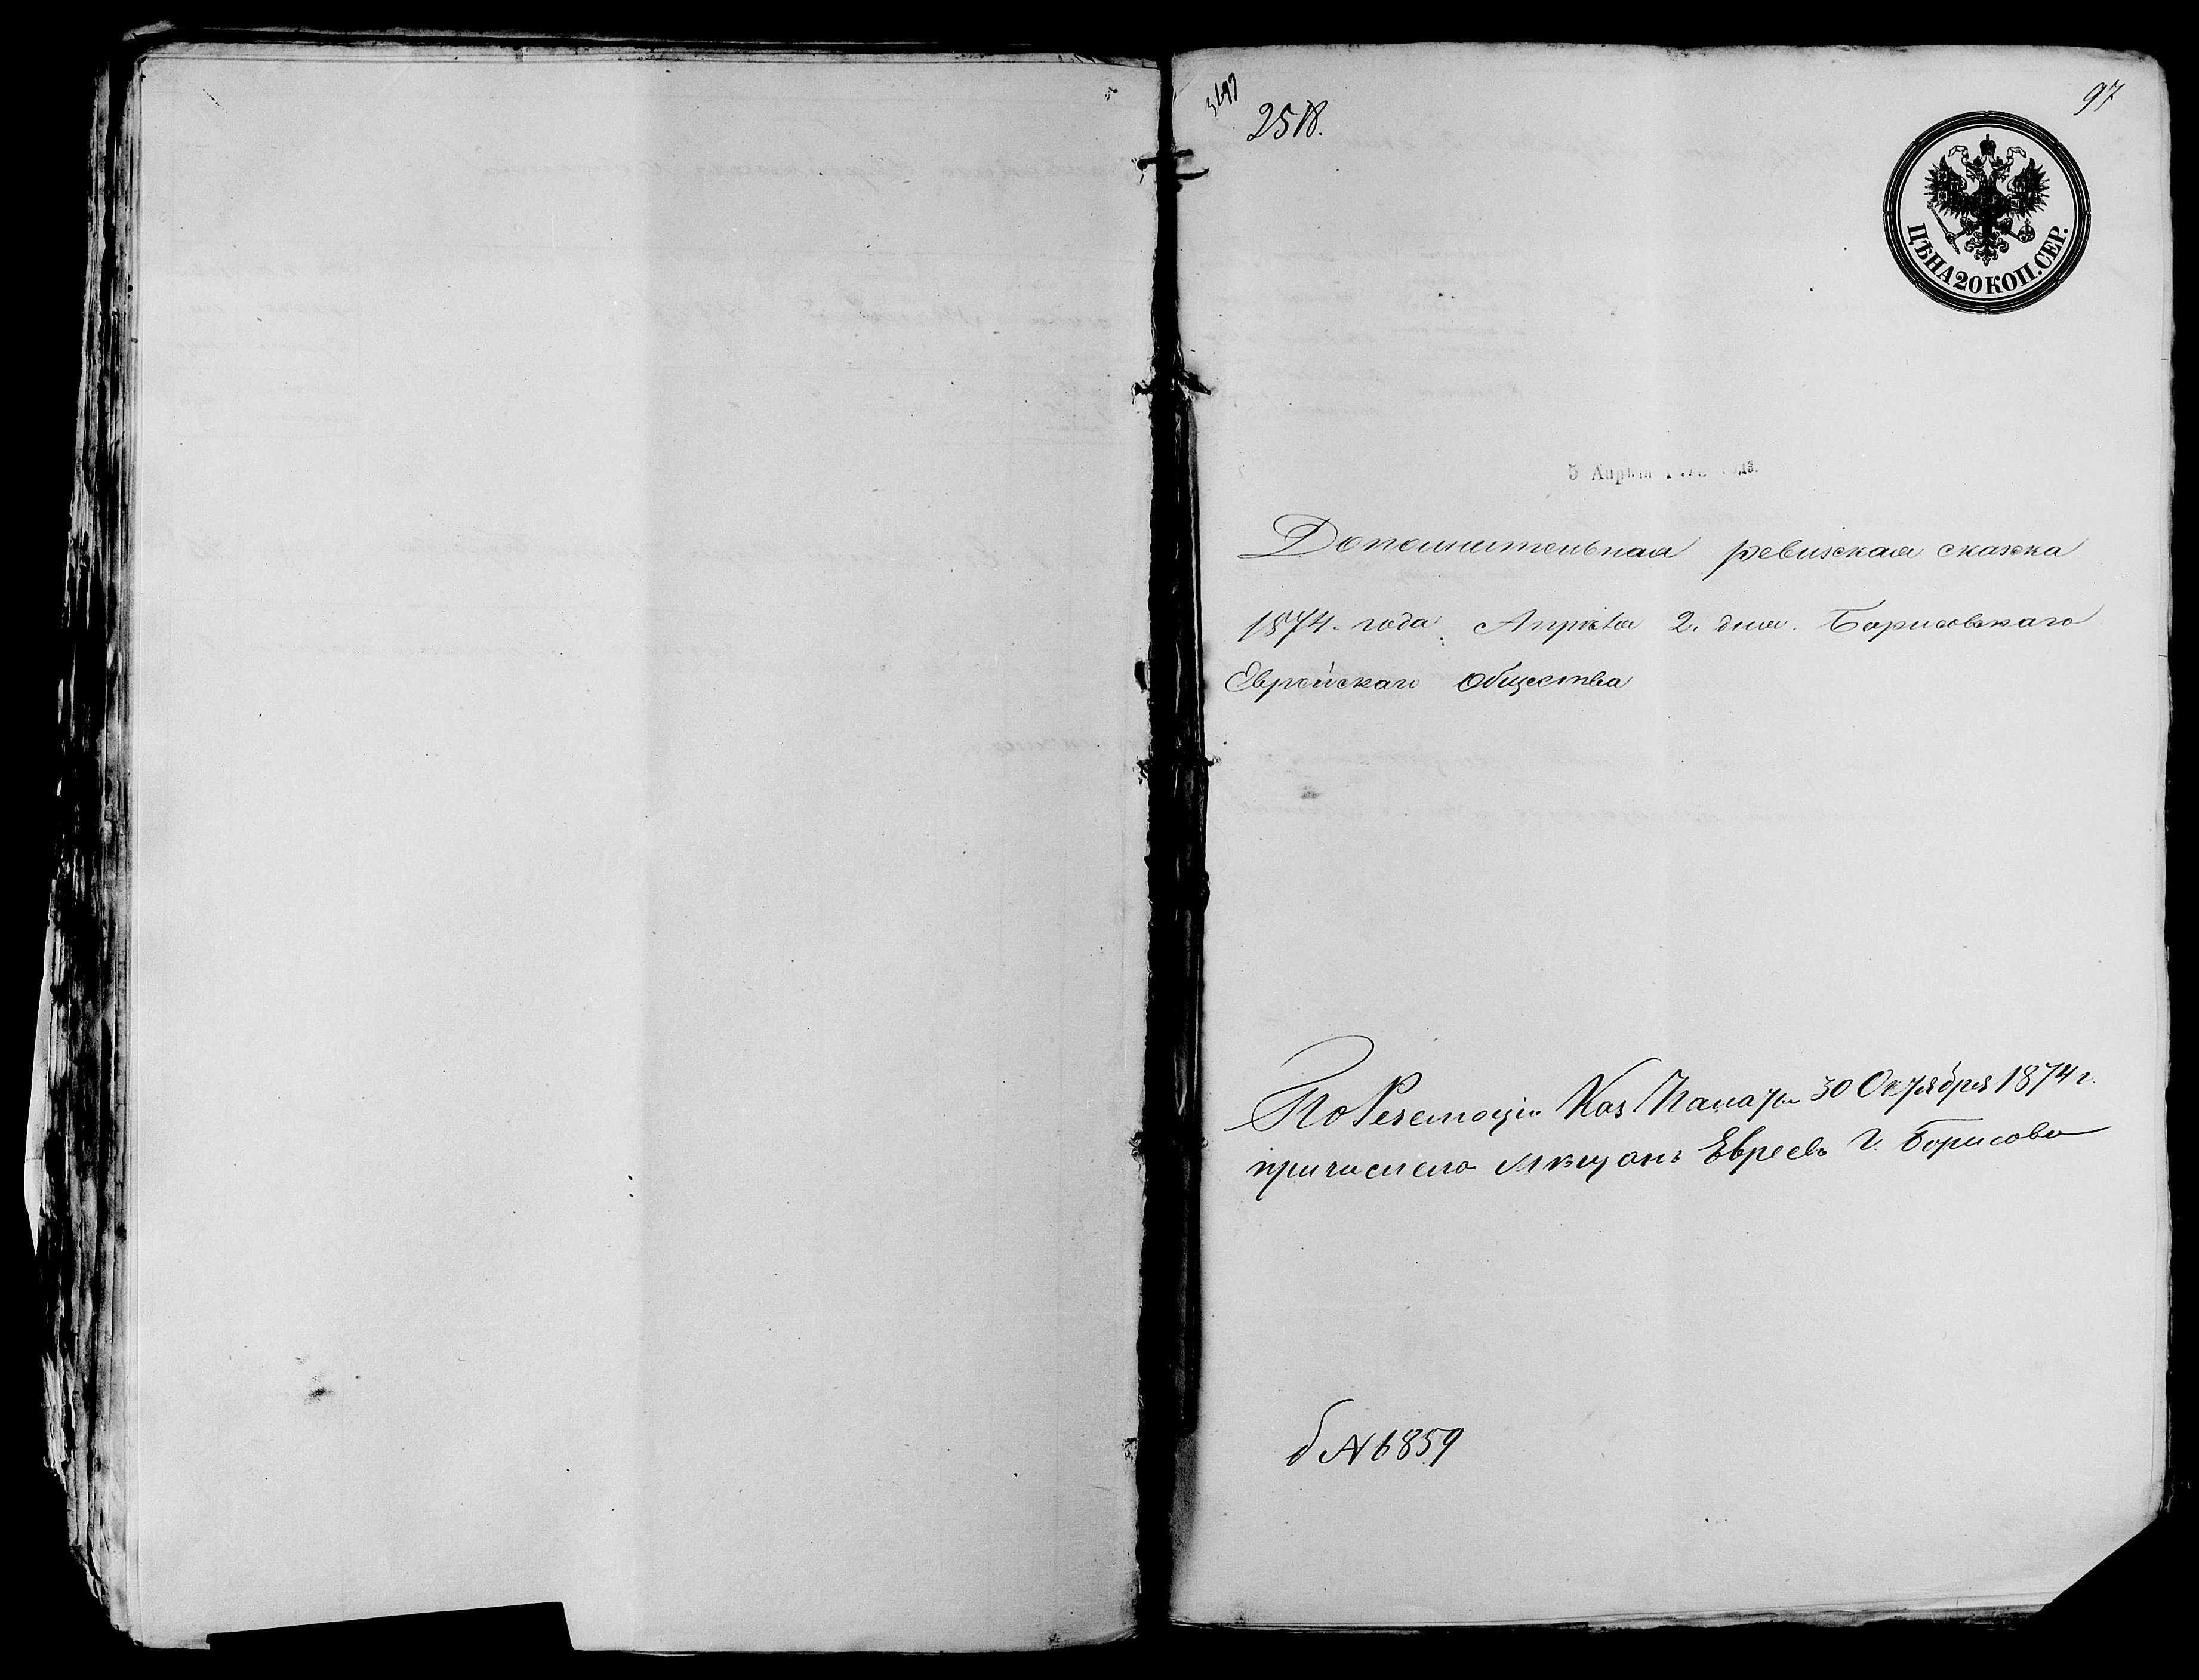 97
2518.
ЦѢНА 20 КОП. СЕР.
5 Апрѣля
Дополнительная ревизская сказка
1874. года Апрѣля 2. дня. Борисовскаго
Еврейскаго общества
По Резолюціи Каз Палаты 30 Октября 1874 г.
причислено мѣщанъ Евреевъ г. Борисова
№ 6859